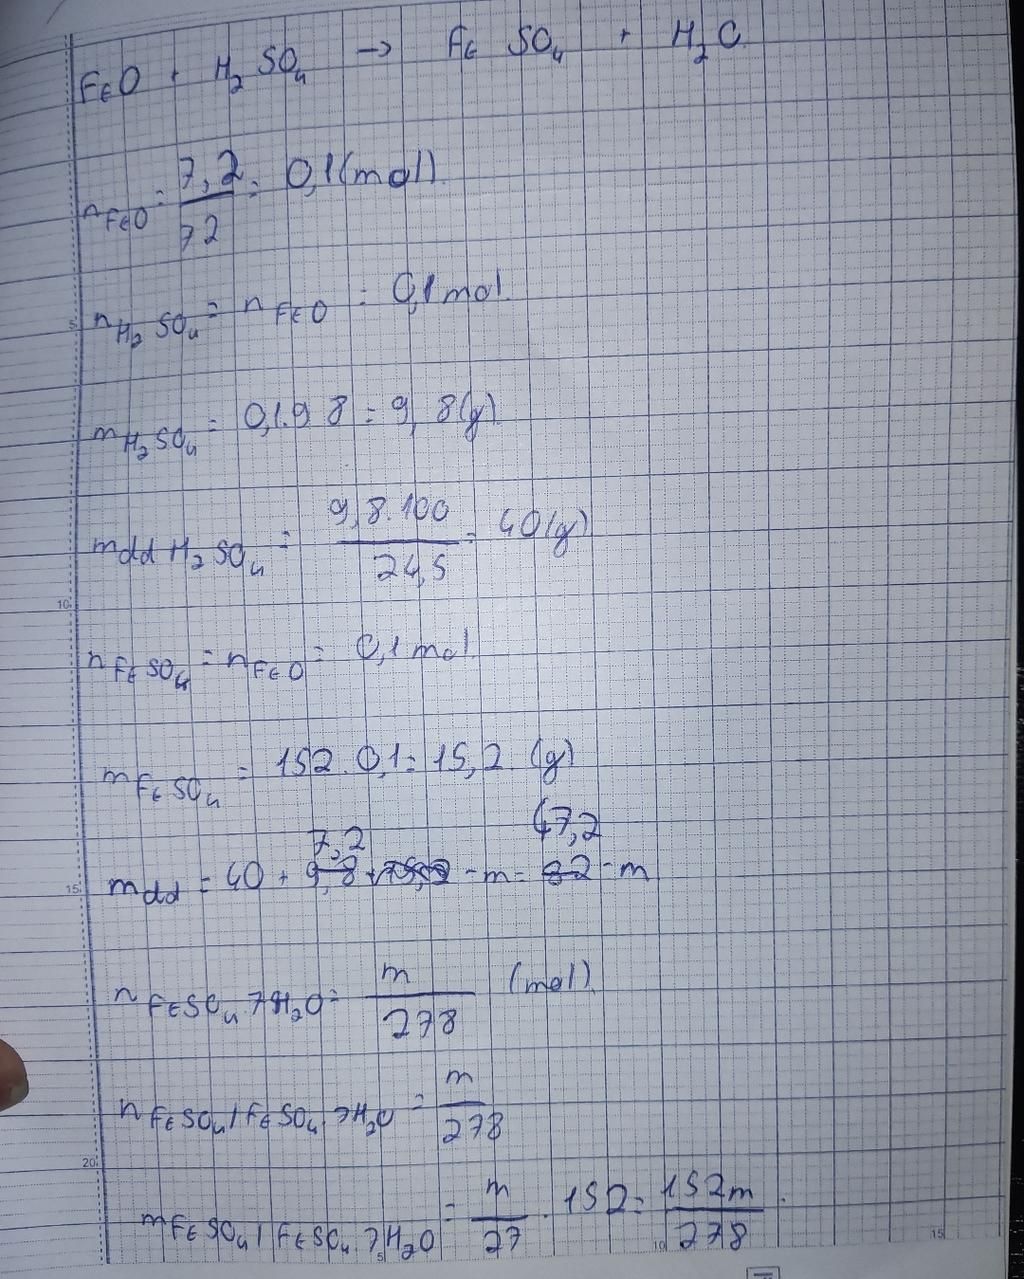 FeO + H2SO4 → FeSO4 + H2O
nFeO = 7,2/72 = 0,1(mol)
nH2SO4 = nFeO = 0,1 mol
mH2SO4 = 0,1.98 = 9,8(g)
mdd H2SO4 = 9,8.100/24,5 = 40(g)
nFeSO4 = nFeO = 0,1 mol
mFeSO4 = 152.0,1 = 15,2 (g)
7,2 47,2
mdd = 40 + 9,8 - m = 32 - m
nFeSO4 7H2O = m/278 (mol)
nFeSO4/FeSO4.7H2O = m/278
mFeSO4/FeSO4.7H2O = m/27 . 152 = 152m/278.
5
10
15
20
5
10
15